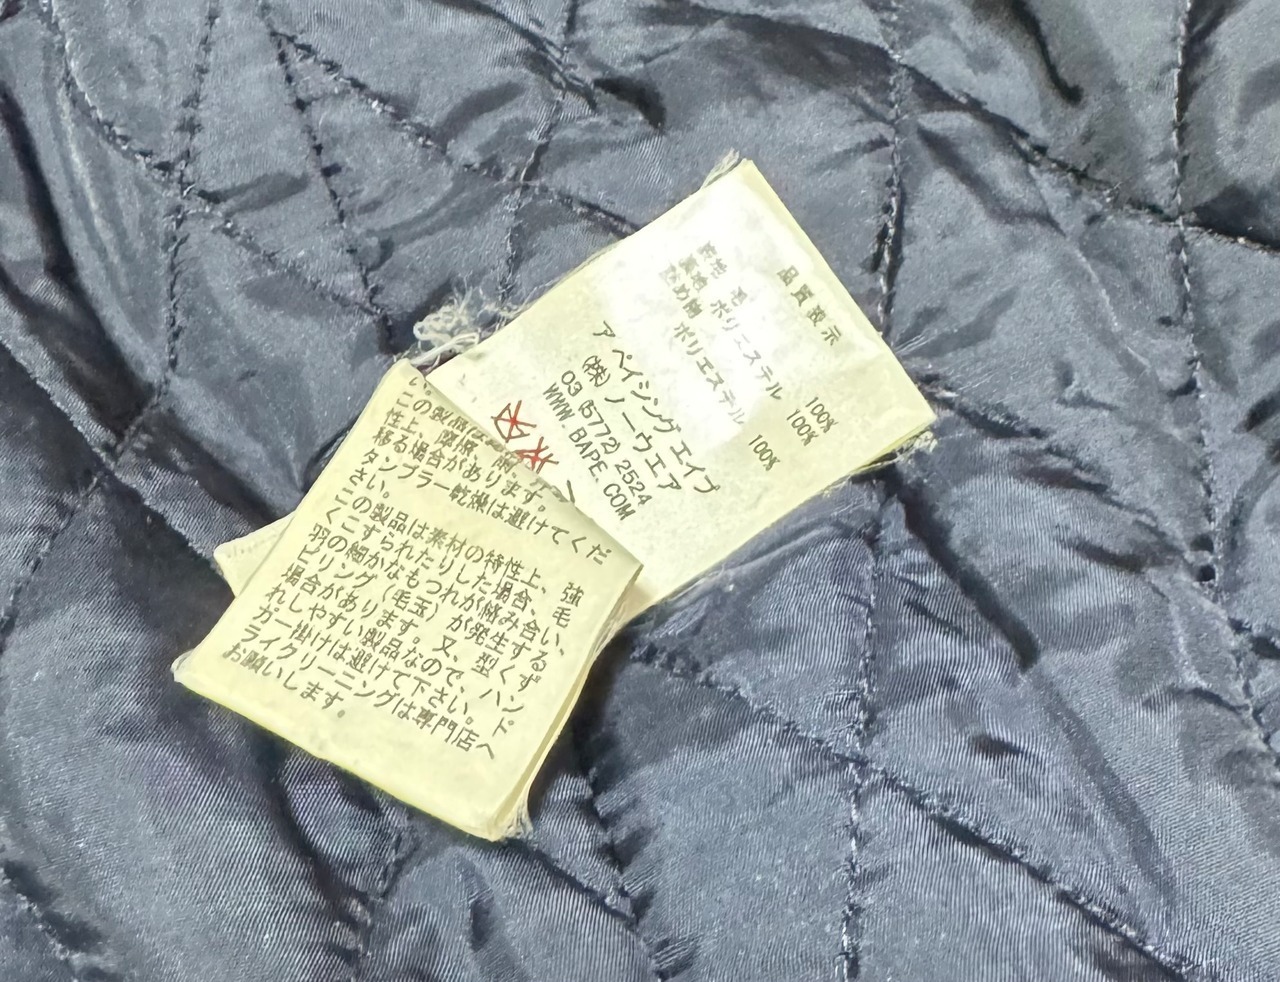 品質表示
表地 毛 100%
裏地 ポリエステル 100%
止め側 ポリエステル 100%
ア ベイシング エイプ
㈱ ノーウェア
03 (5772) 2524
WWW.BAPE.COM
い。
この製品は
性上、摩擦、
移る場合があります。
タンブラー乾燥は避けてくだ
さい。
この製品は素材の特性上、強
くこすられたりした場合、毛
羽の細かなもつれが絡み合い、
ピリング（毛玉）が発生する
場合があります。又、型くず
れしやすい製品なので、ハン
ガー掛けは避けて下さい。ド
ライクリーニングは専門店へ
お願いします。